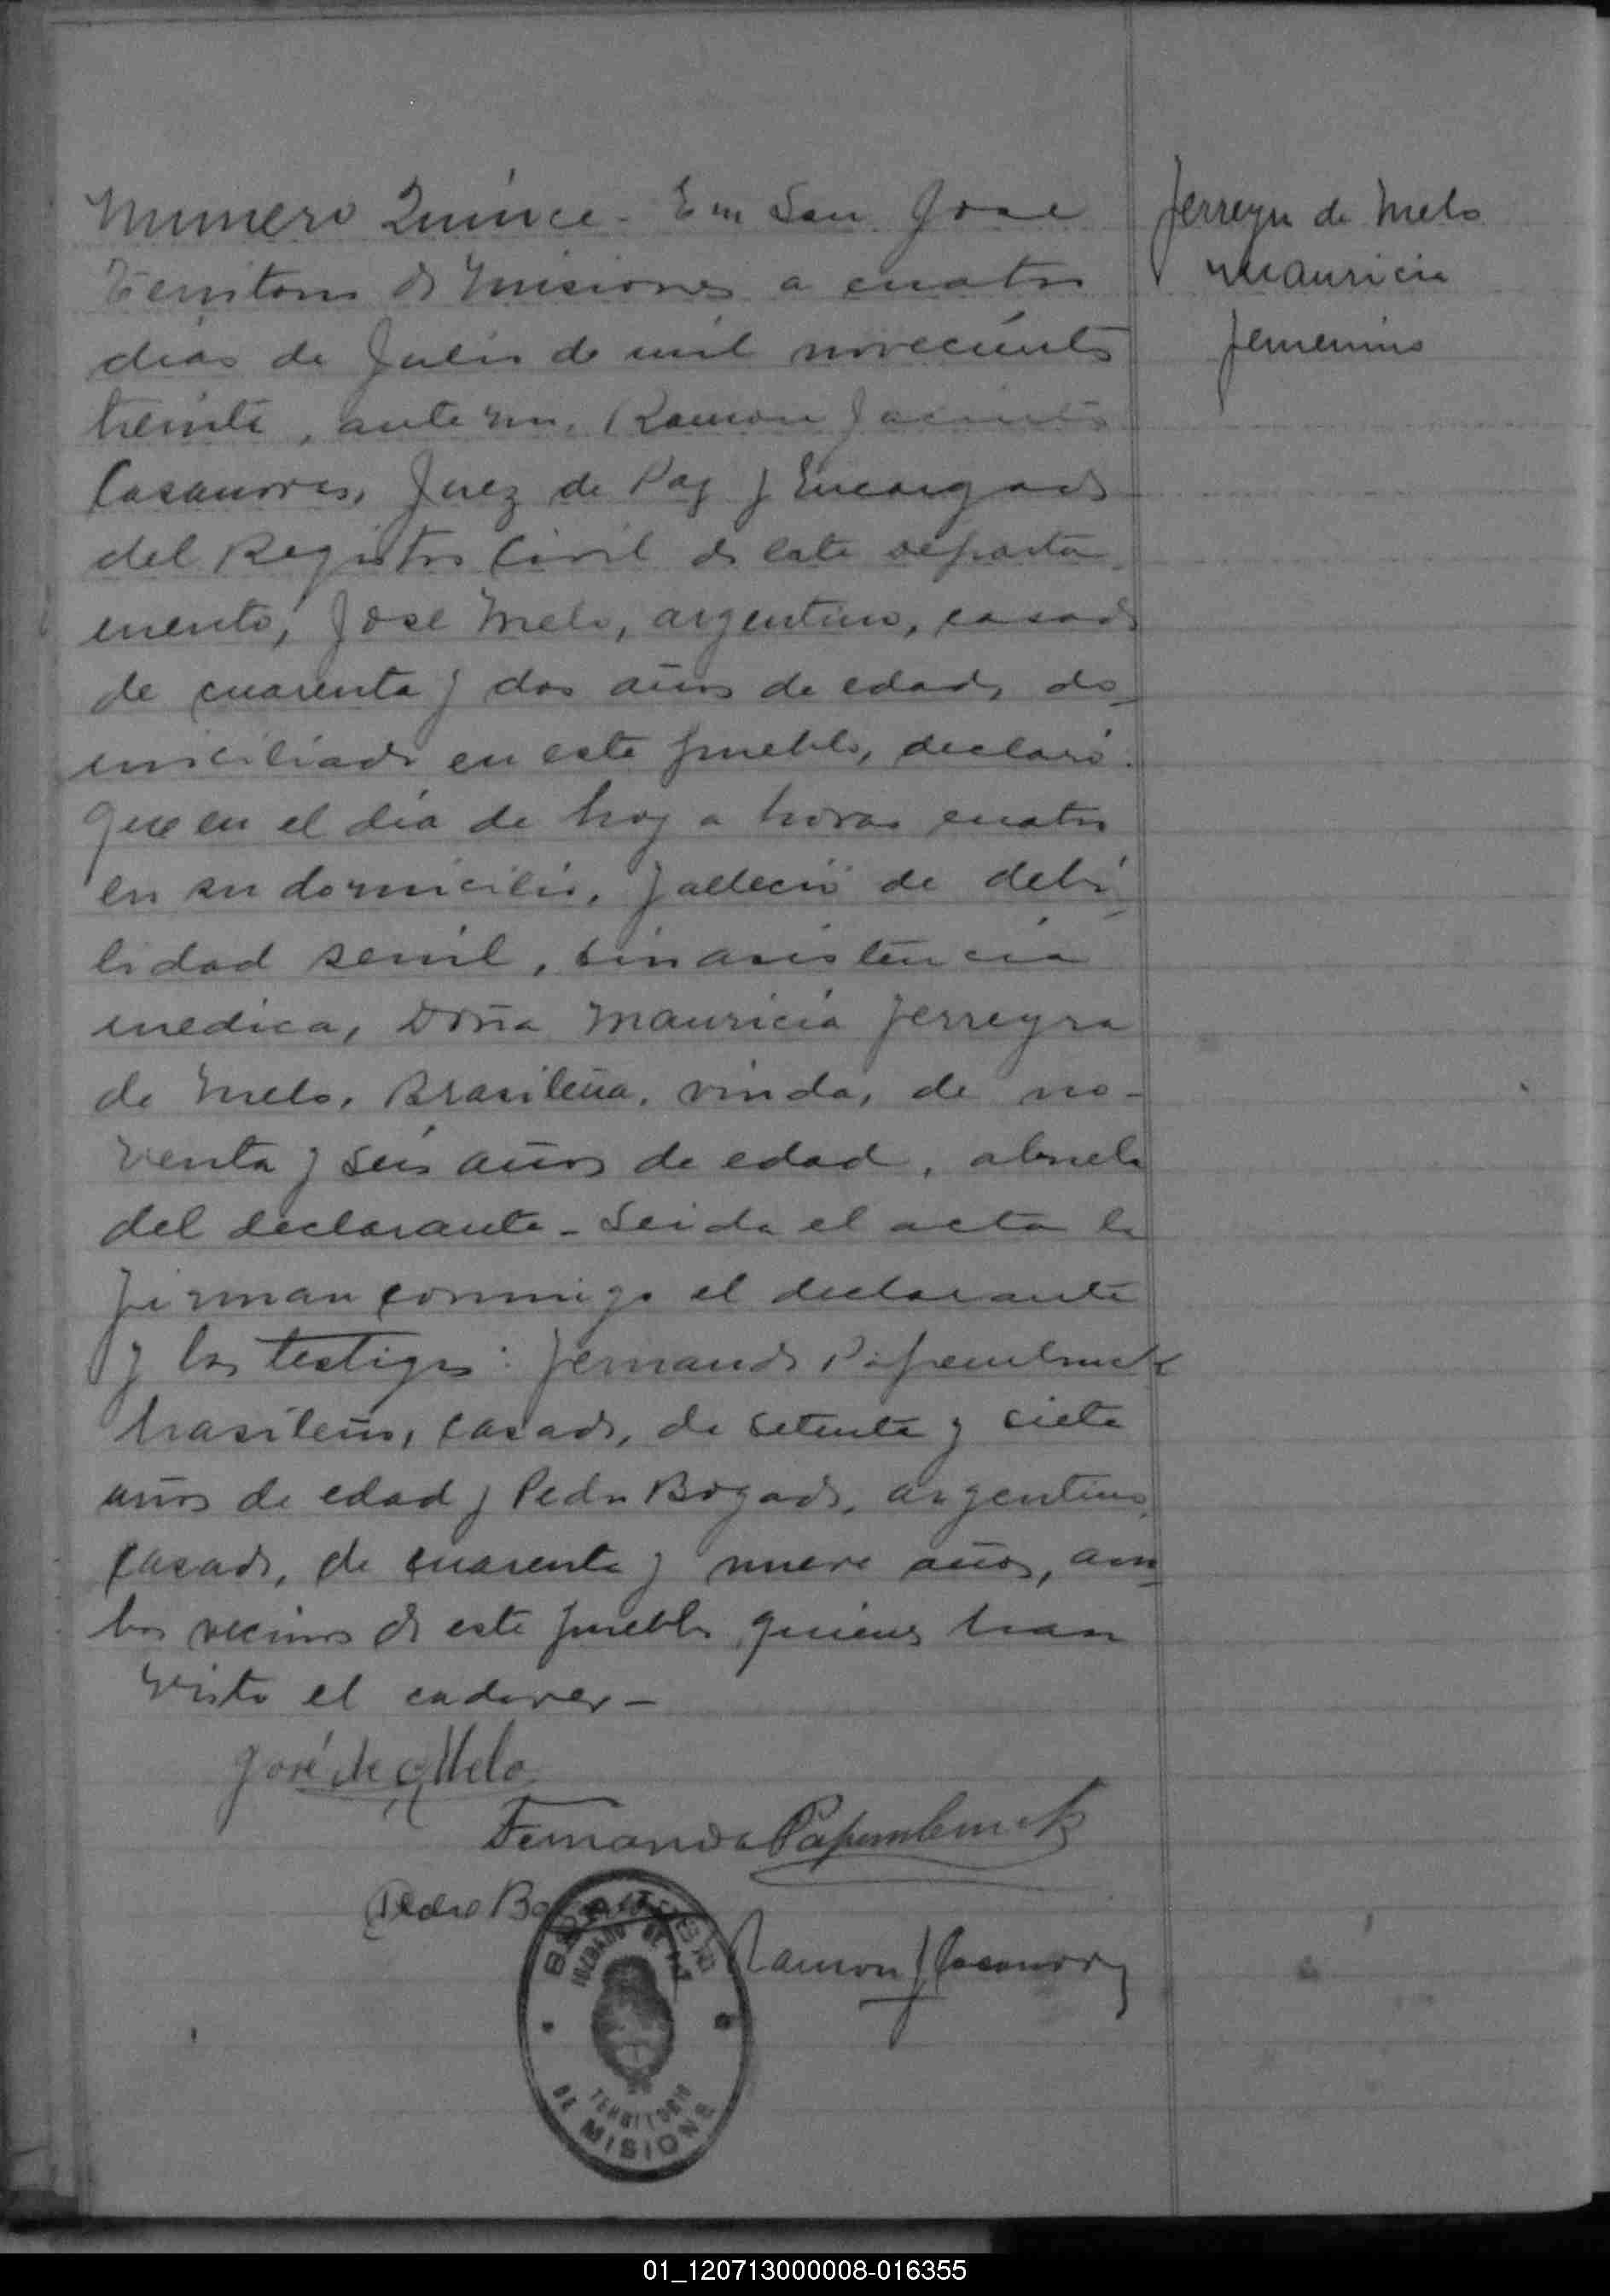 Numero Quince - En San Jose
Territorio de Misiones a cuatro
dias de Julio de mil novecientos
treinta, ante mi, Ramon Jacinto
Casanova, Juez de Paz y Encargado
del Registro Civil de este departa
mento, Jose Melo, argentino, casado
de cuarenta y dos años de edad, do-
miciliado en este pueblo, declaró:
Que en el dia de hoy a horas cuatro
en su domicilio, falleció de debi-
lidad senil, sin asistencia
medica, Doña Mauricia Ferreyra
de Melo, Brasileña, viuda, de no-
venta y seis años de edad, abuela
del declarante - Leida el acta la
firman conmigo el declarante
y los testigos: Fernando Papembruck
brasileño, casado, de setenta y siete
años de edad y Pedro Bogado, argentino,
casado, de cuarenta y nueve años, am-
bos vecinos de este pueblo quienes han
visto el cadaver -
José de Melo
Fernando Papembruck
Pedro Bo
Ramon J Casanova
JUZGADO DE PAZ
TERRITORIO
DE MISIONES
Ferreyra de Melo
Mauricia
femenino
01_120713000008-016355